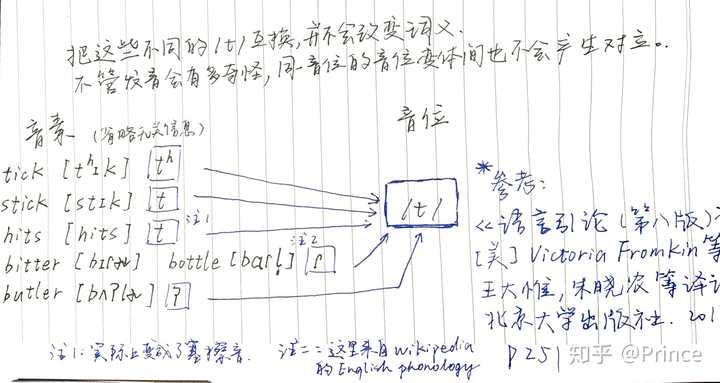 把这些不同的/t/互换,并不会改变词义.
不管发音会有多奇怪,同一音位的音位变体间也不会产生对立。
音素 (省略无关信息) 音位
tick [tʰɪk] tʰ
stick [stɪk] t
hits [hits] t 注1
/t/
bitter [bɪɾɚ] bottle [bɑɾl̩] ɾ 注2
butler [bʌʔlɚ] ʔ
*参考:
《语言引论(第八版)》
[美] Victoria Fromkin 等
王大惟,朱晓农等译
北京大学出版社. 201
P251
注1:实际上变成了塞擦音. 注二:这里来自wikipedia
的English phonology
知乎 @Prince